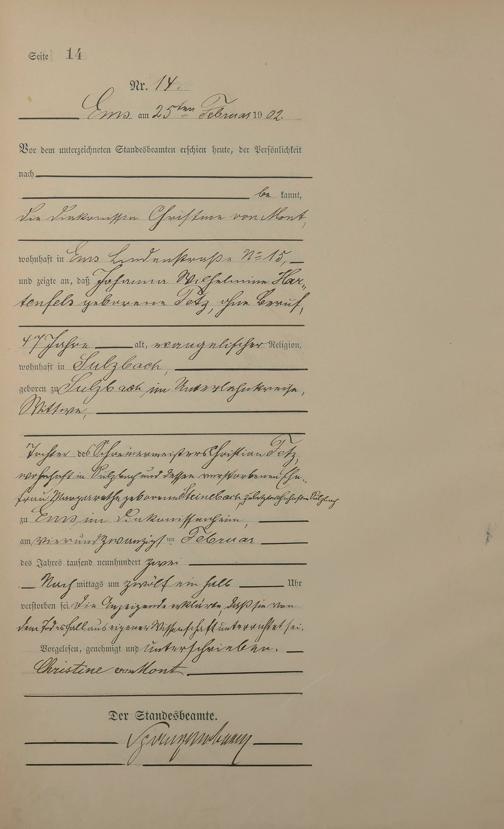 Seite 14
Nr. 14.
Ems am 25ten Februar 1902
Vor dem unterzeichneten Standesbeamten erschien heute, der Persönlichkeit
nach
be kannt,
die Diakonissin Christine von Mont,
wohnhaft in Ems Lindenstraße No 15,
und zeigte an, daß Johanna Wilhelmine Har-
tenfels geborene Totz, ohne Beruf,
47 Jahre alt, evangelischer Religion,
wohnhaft in Sulzbach,
geboren zu Sulzbach, im Unterlahnkreise,
Wittwe,
Tochter des Schreinermeisters Christian Totz,
wohnhaft in Sulzbach und dessen verstorbenen Ehe-
frau Margarethe geborene Steinebach, zuletzt wohnhaft in Sulzbach
zu Ems im Diakonissenheim,
am vierundzwanzigsten Februar
des Jahres tausend neunhundert zwei
Nach mittags um zwölf ein halb Uhr
verstorben sei. Die Anzeigende erklärte, daß sie von
dem Todesfall aus eigener Wissenschaft unterrichtet sei.
Vorgelesen, genehmigt und unterschrieben.
Christine von Mont
Der Standesbeamte.